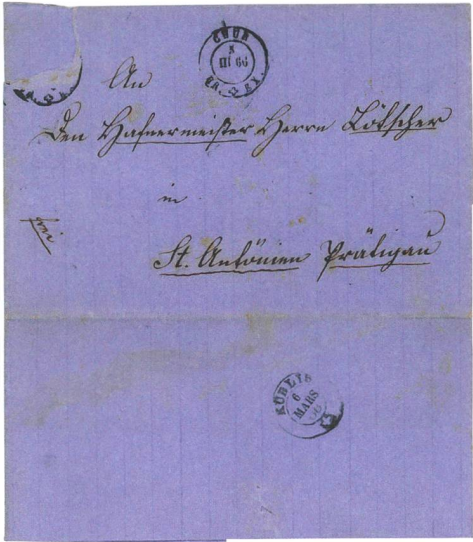 CHUR
III 66
An
Den Hafnermeister Herrn Lötscher
in
frei
St. Antönien Prätigau
KÜBLIS
6
MARS